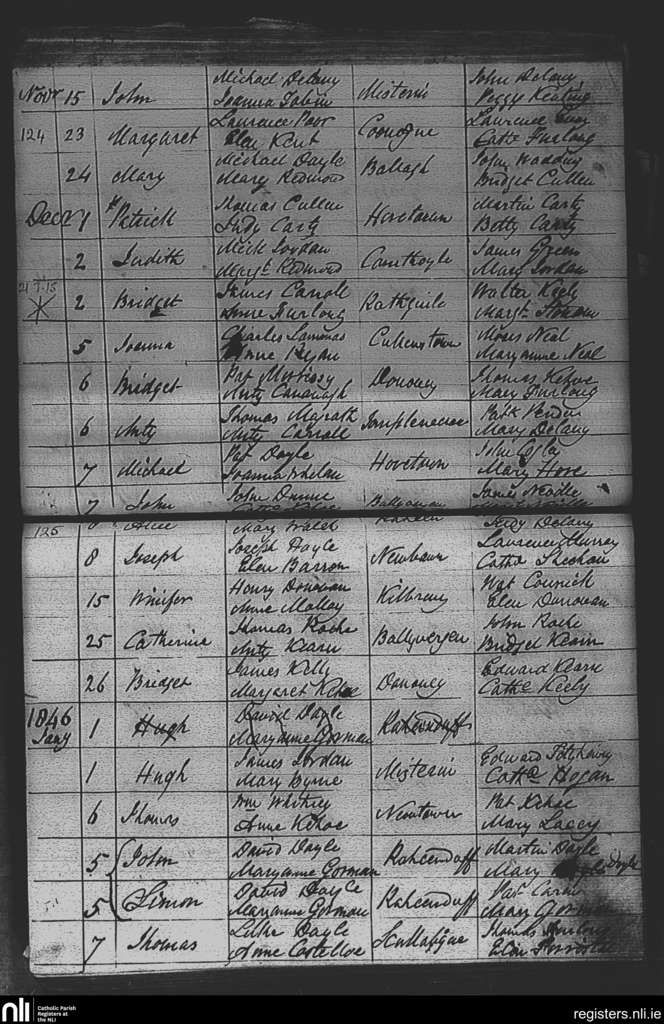 Michael Delany John Delany
Novr 15 John Misterin
Joanna Tobin Peggy Keating
Laurence Poor Laurence
124 23 Margaret Coonogue
Elen Kent Cathe Furlong
Michael Doyle John Wadding
24 Mary Ballagh
Mary Redmond Bridget Cullen
Thomas Cullen Martin Carty
Decr 1 Patrick Hovetown
Judy Carty Betty Carty
Mick Jordan James Green
2 Judith
Margt Redmond Mary Jordan
James Carroll Walter Keely
2 Bridget Rathguile
Anne Furlong Margt
Charles Moses Neal
5 Joanna Cullenstown
Anne Ryan Maryanne Neal
Pat Morrissy Thomas Kehoe
6 Bridget Donouey
Anty Cavanagh Mary Furlong
Thomas Magrath Patk
6 Anty
Anty Carroll Mary Delany
Pat Doyle John
7 Michael Hovetown
Joanna Whelan Mary Hore
John Dunne James Neville
7 John
125 8 Alice Mary Walsh Judy Delany
Joseph Hayle Laurence Murray
8 Joseph Newbawn
Elen Barron Cathe Sheehan
Henry Donovan Wat
15 Winifer Kilbreny
Anne Molloy Elen Donovan
Thomas Roche John Roche
25 Catherine Ballyvergen
Anty Kearn Bridget Kearn
James Kelly Edward Kearn
26 Bridget Donouey
Margaret Kehoe Cathe Keely
1846 David Doyle
Jany 1 Hugh Raheenduff
Maryanne Gorman
James Jordan Edward Fitzhenry
1 Hugh Misterin
Mary Byrne Cathe Hogan
Wm Whitney Pat Kehoe
6 Thomas Newtown
Anne Kehoe Mary Lacey
David Doyle Martin Doyle
5 John Raheenduff
Maryanne Gorman Mary Doyle
David Doyle Pat
5 Simon Raheenduff
Maryanne Gorman Mary Gorman
Luke Doyle Thomas Furlong
7 Thomas Scullabogue
Anne Costelloe Elen
nli Catholic Parish
Registers at
the NLI
registers.nli.ie